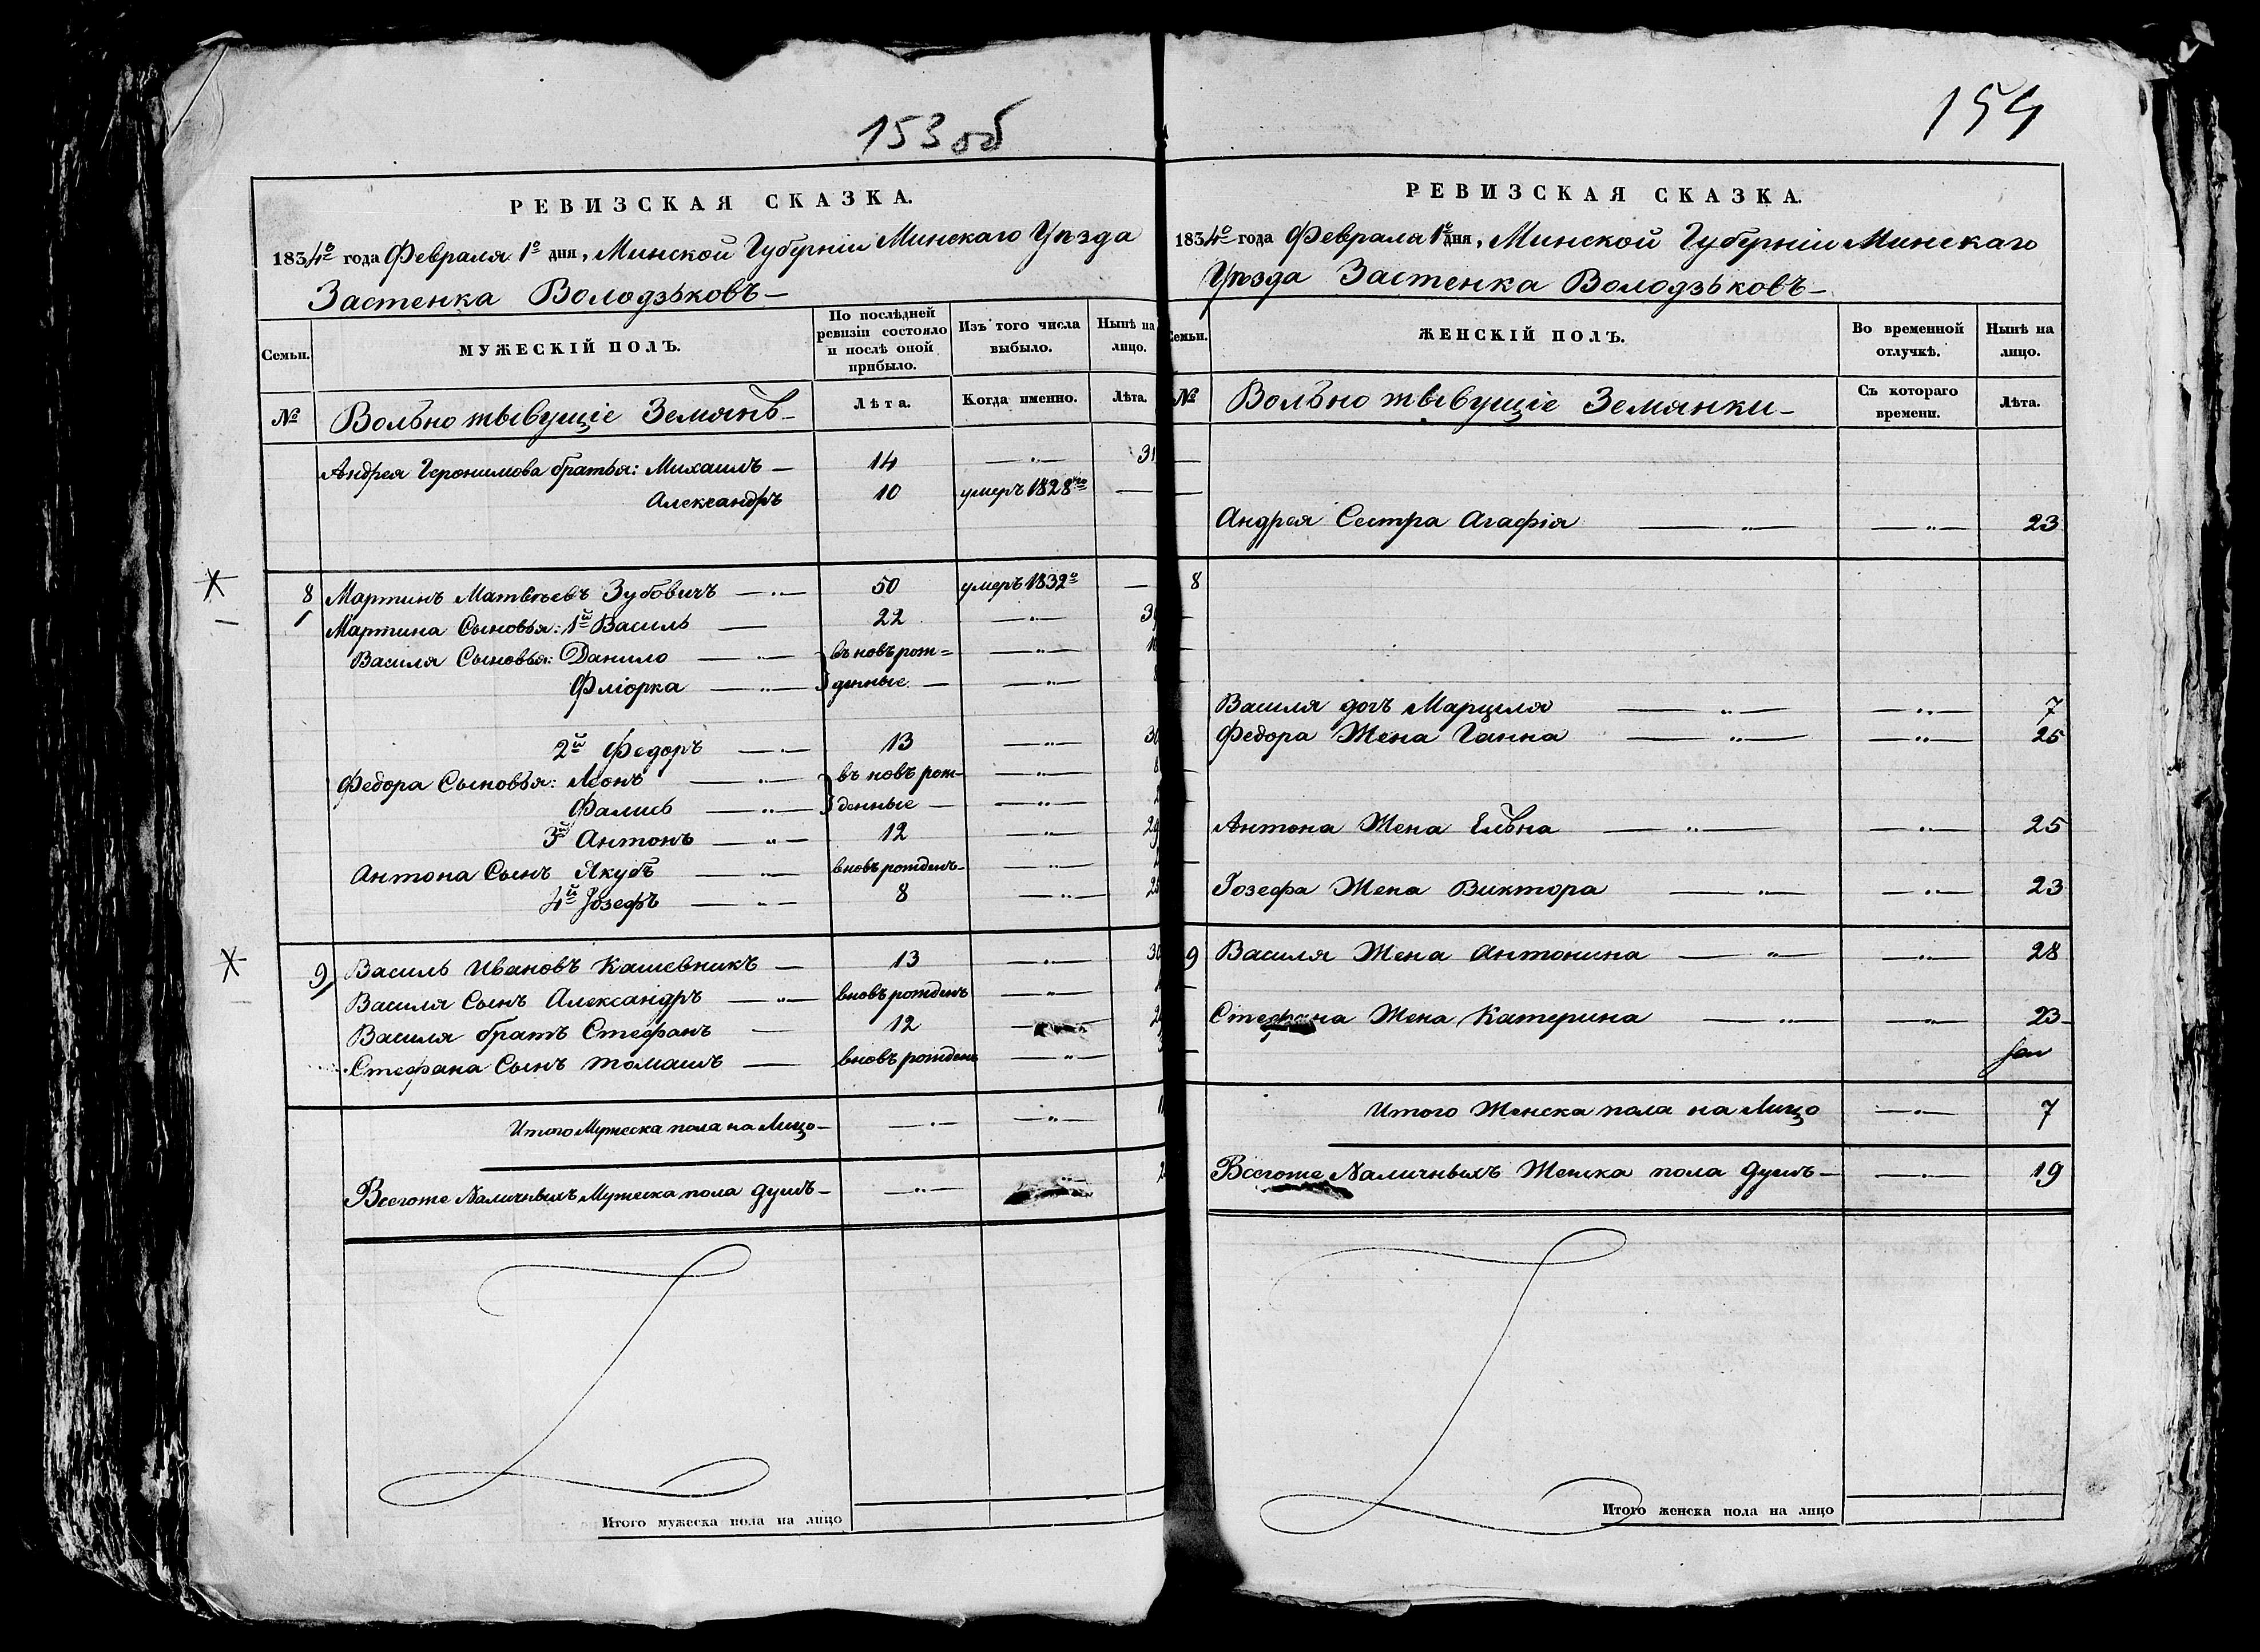 153 об
РЕВИЗСКАЯ СКАЗКА.
1834го года Февраля 1го дня, Минской Губерніи Минскаго Уѣзда
Застенка Володзьковъ —
Семьи.
МУЖЕСКІЙ ПОЛЪ.
По послѣдней ревизіи состояло и послѣ оной прибыло.
Изъ того числа выбыло.
Нынѣ на лицо.
№
Вольно живущіе Земянѣ —
Лѣта.
Когда именно.
Лѣта.
Андрея Геронимова братья: Михаилъ — 14 — „ — 31
Александръ 10 умеръ 1828го —
8 Мартинъ Матвѣевъ Зубовичъ — 50 умеръ 1832го —
Мартина Сыновья: 1й Василь — 22 — „ —
Василя Сыновья: Данило — вновь рож= — „ —
Фліорка — денные — — „ —
2й Федоръ — 13 — „ — 30
Федора Сыновья: Леонъ — въ новъ рож- — „ —
Фалисъ — денные — — „ —
3й Антонъ — 12 — „ — 29
Антона Сынъ Якубъ — вновь рожденъ — „ —
4й Іозефъ — 8 — „ —
9 Василь Ивановъ Кашевникъ — 13 — „ — 30
Василя Сынъ Александръ — вновь рожденъ — „ —
Василя братъ Стефанъ — 12
Стефана Сынъ Томашъ — вновь рожденъ — „ —
Итого Мужеска пола на Лицо — — „ — — „ —
Всегоже Наличныхъ Мужеска пола душъ — — „ —
Итого мужеска пола на лицо
154
РЕВИЗСКАЯ СКАЗКА.
1834го года Февраля 1го дня, Минской Губерніи Минскаго
Уѣзда Застенка Володзьковъ —
Семьи.
ЖЕНСКІЙ ПОЛЪ.
Во временной отлучкѣ.
Нынѣ на лицо.
№
Вольно живущіе Земянки —
Съ котораго времени.
Лѣта.
Андрея Сестра Агафія — „ — — „ — 23
8
Василя дочь Марцеля — „ — — „ — 7
Федора Жена Ганна — „ — — „ — 25
Антона Жена Ельна — „ — — „ — 25
Іозефа Жена Виктора — „ — — „ — 23
9 Василя Жена Антонина — „ — — „ — 28
Стефана Жена Катерина — „ — — „ — 23
Итого Женска пола на Лицо — „ — 7
Всегоже Наличныхъ Женска пола душъ — — „ — 19
Итого женска пола на лицо